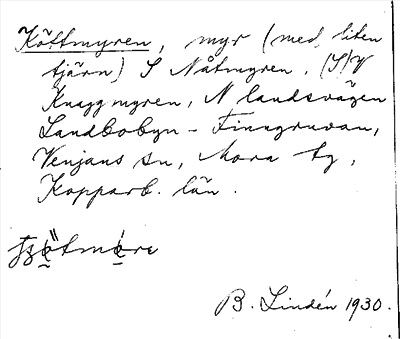 Köttmyren, myr (med liten
tjärn) S Nåtmyren, (S)V
Knaggmyren, N landsvägen
Landbobyn - Finngruvan,
Venjans sn, Mora tg,
Kopparb. län.
B. Lindén 1930.